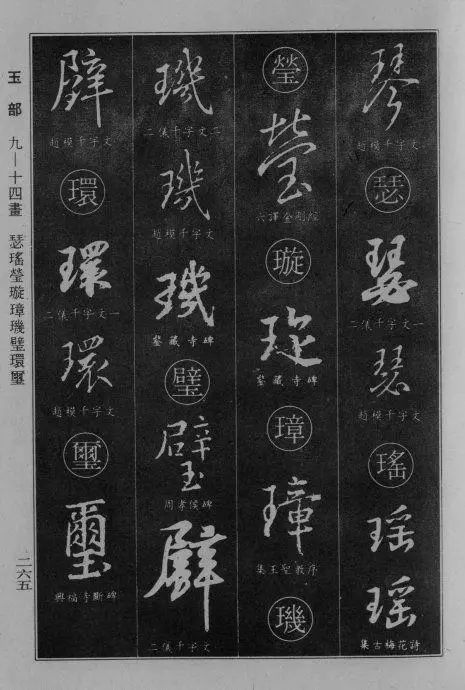 琴
趙模千字文
瑟
瑟
二儀千字文一
瑟
趙模千字文
瑤
瑤
瑤
集古梅花詩
瑩
瑩
六譯金剛經
璇
璇
鉴藏寺碑
璋
璋
集王聖教序
璣
璣
二儀千字文二
璣
趙模千字文
璣
鉴藏寺碑
璧
璧
周孝侯碑
璧
二儀千字文
璧
趙模千字文
環
環
二儀千字文一
環
趙模千字文
璽
璽
興福寺斷碑
玉部 九—十四畫 瑟瑤瑩璇璋璣璧環璽
二六五